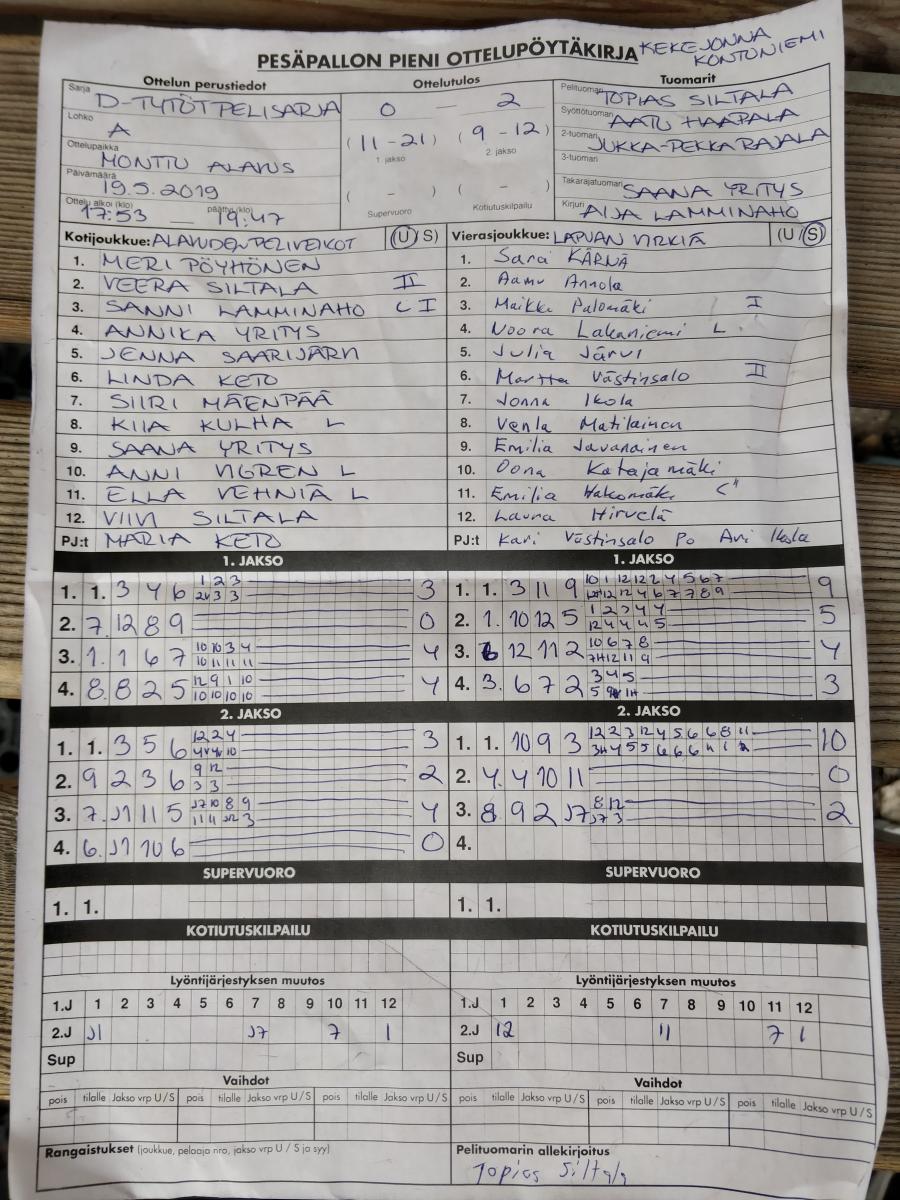 PESÄPALLON PIENI OTTELUPÖYTÄKIRJA
KEKEJONNA
KONTONIEMI
Ottelun perustiedot Ottelutulos Tuomarit
Sarja D-TYTÖT PELISARJA
Lohko A
Ottelupaikka MONTTU ALAVUS
Päivämäärä 19.5.2019
Ottelu alkoi (klo) 17:53 — päättyi (klo) 19:47
0 — 2
(11 - 21) (9 - 12)
1 jakso 2. jakso
( - ) ( - )
Supervuoro Kotiutuskilpailu
Pelituomari TOPIAS SILTALA
Syöttötuomari AATU HAAPALA
2-tuomari JUKKA-PEKKA RAJALA
3-tuomari
Takarajatuomari SAANA YRITYS
Kirjuri AIJA LAMMINAHO
Kotijoukkue: ALAVUDEN PELIVEIKOT (U/S)
1. MERI PÖYHÖNEN
2. VEERA SILTALA II
3. SANNI LAMMINAHO C I
4. ANNIKA YRITYS
5. JENNA SAARIJÄRVI
6. LINDA KETO
7. SIIRI MÄENPÄÄ
8. KIIA KULHA L
9. SAANA YRITYS
10. ANNI VIGREN L
11. ELLA VEHNIÄ L
12. VIIVI SILTALA
PJ:t MARIA KETO
Vierasjoukkue: LAPUAN VIRKIÄ (U/S)
1. Sara KÄRNÄ
2. Aamu Annola
3. Maikki Palomäki I
4. Noora Lakaniemi L
5. Julia Järvi
6. Martta Västinsalo II
7. Jonna Ikola
8. Venla Matilainen
9. Emilia Javanainen
10. Oona Katajamäki
11. Emilia Hakomäki C
12. Laura Hirvelä
PJ:t Kari Västinsalo Po Ari Ikola
1. JAKSO
1. 1. 3 4 6 1 2 3 3
2. 7. 12 8 9 0
3. 1. 1 6 7 10 10 3 4 4
10 11 11 11
4. 8. 8 2 5 12 9 1 10 4
10 10 10 10
1. JAKSO
1. 1. 3 11 9 10 1 12 12 2 4 5 6 7 9
2. 1. 10 12 5 1 2 3 4 4 5
12 4 4 4 5
3. 6 12 11 2 10 6 7 8 4
4. 3. 6 7 2 3 4 5 3
2. JAKSO
1. 1. 3 5 6 12 2 4 3
2. 9 2 3 6 9 12 2
3 3
3. 7. J1 11 5 J7 10 8 9 4
4. 6. J1 10 6 0
2. JAKSO
1. 1. 10 9 3 12 2 3 12 4 5 6 6 8 11 10
2. 4. 4 10 11 0
3. 8. 9 2 J7 8 12 2
J7 3
4.
SUPERVUORO SUPERVUORO
1. 1. 1. 1.
KOTIUTUSKILPAILU KOTIUTUSKILPAILU
Lyöntijärjestyksen muutos Lyöntijärjestyksen muutos
1.J 1 2 3 4 5 6 7 8 9 10 11 12 1.J 1 2 3 4 5 6 7 8 9 10 11 12
2.J J1 J7 7 1 2.J 12 11 7 1
Sup Sup
Vaihdot Vaihdot
pois tilalle Jakso vrp U/S pois tilalle Jakso vrp U/S pois tilalle Jakso vrp U/S pois tilalle Jakso vrp U/S pois tilalle Jakso vrp U/S pois tilalle Jakso vrp U/S
Rangaistukset (joukkue, pelaaja nro, jakso vrp U / S ja syy) Pelituomarin allekirjoitus
Topias Siltala